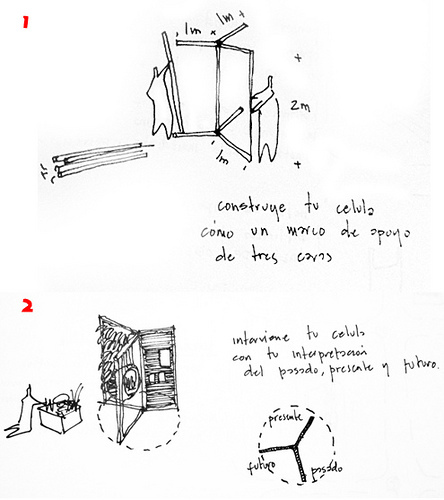 1
1m x 1m +
+
2m
1m
+
construye tu celula
cómo un marco de apoyo
de tres caras
2
interviene tu celula
con tu interpretación
del pasado, presente y futuro.
presente
futuro
pasado